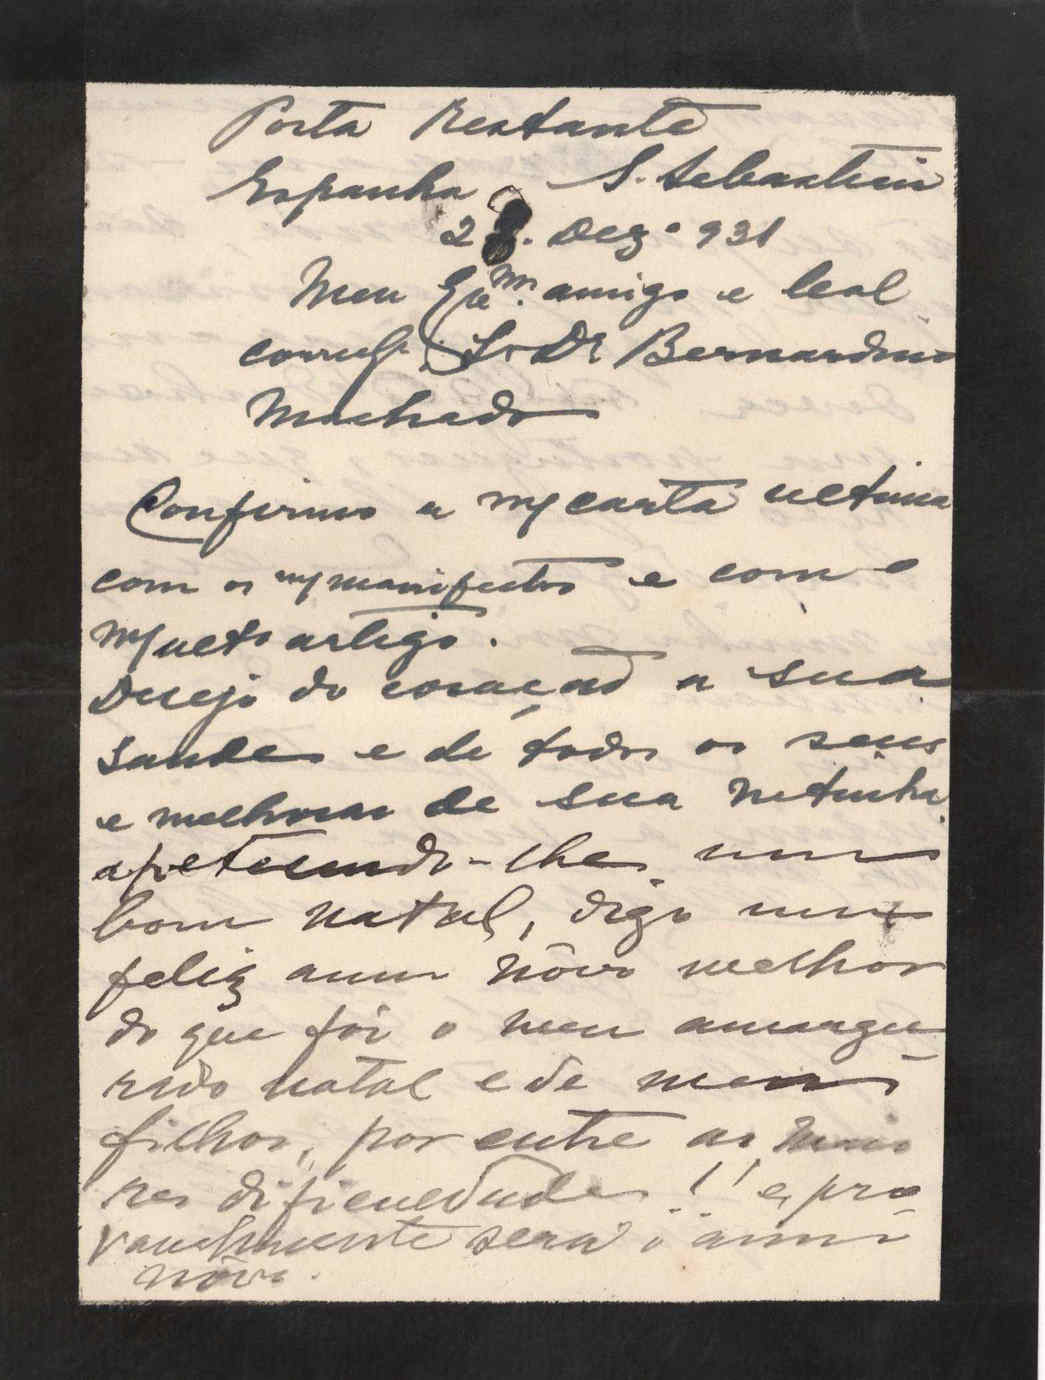 Posta Restante
Espanha S. Sebastian
28. Dezº 931
Meu Exmº. amigo e leal
correlg. Sr Dr Bernardino
Machado
Confirmo a m/ carta ultima
com os m/ manifestos e com o
m/ ulto artigo.
Desejo do coração a sua
saude e de todos os seus
e melhoras de sua netinha,
apetecendo-lhe um
bom natal, digo um
feliz anno nôvo melhor
do que foi o meu amargu
rado natal e de meus
filhos, por entre as maio
res dificuldades!! e, pro
vavelmente será o anno
nôvo.